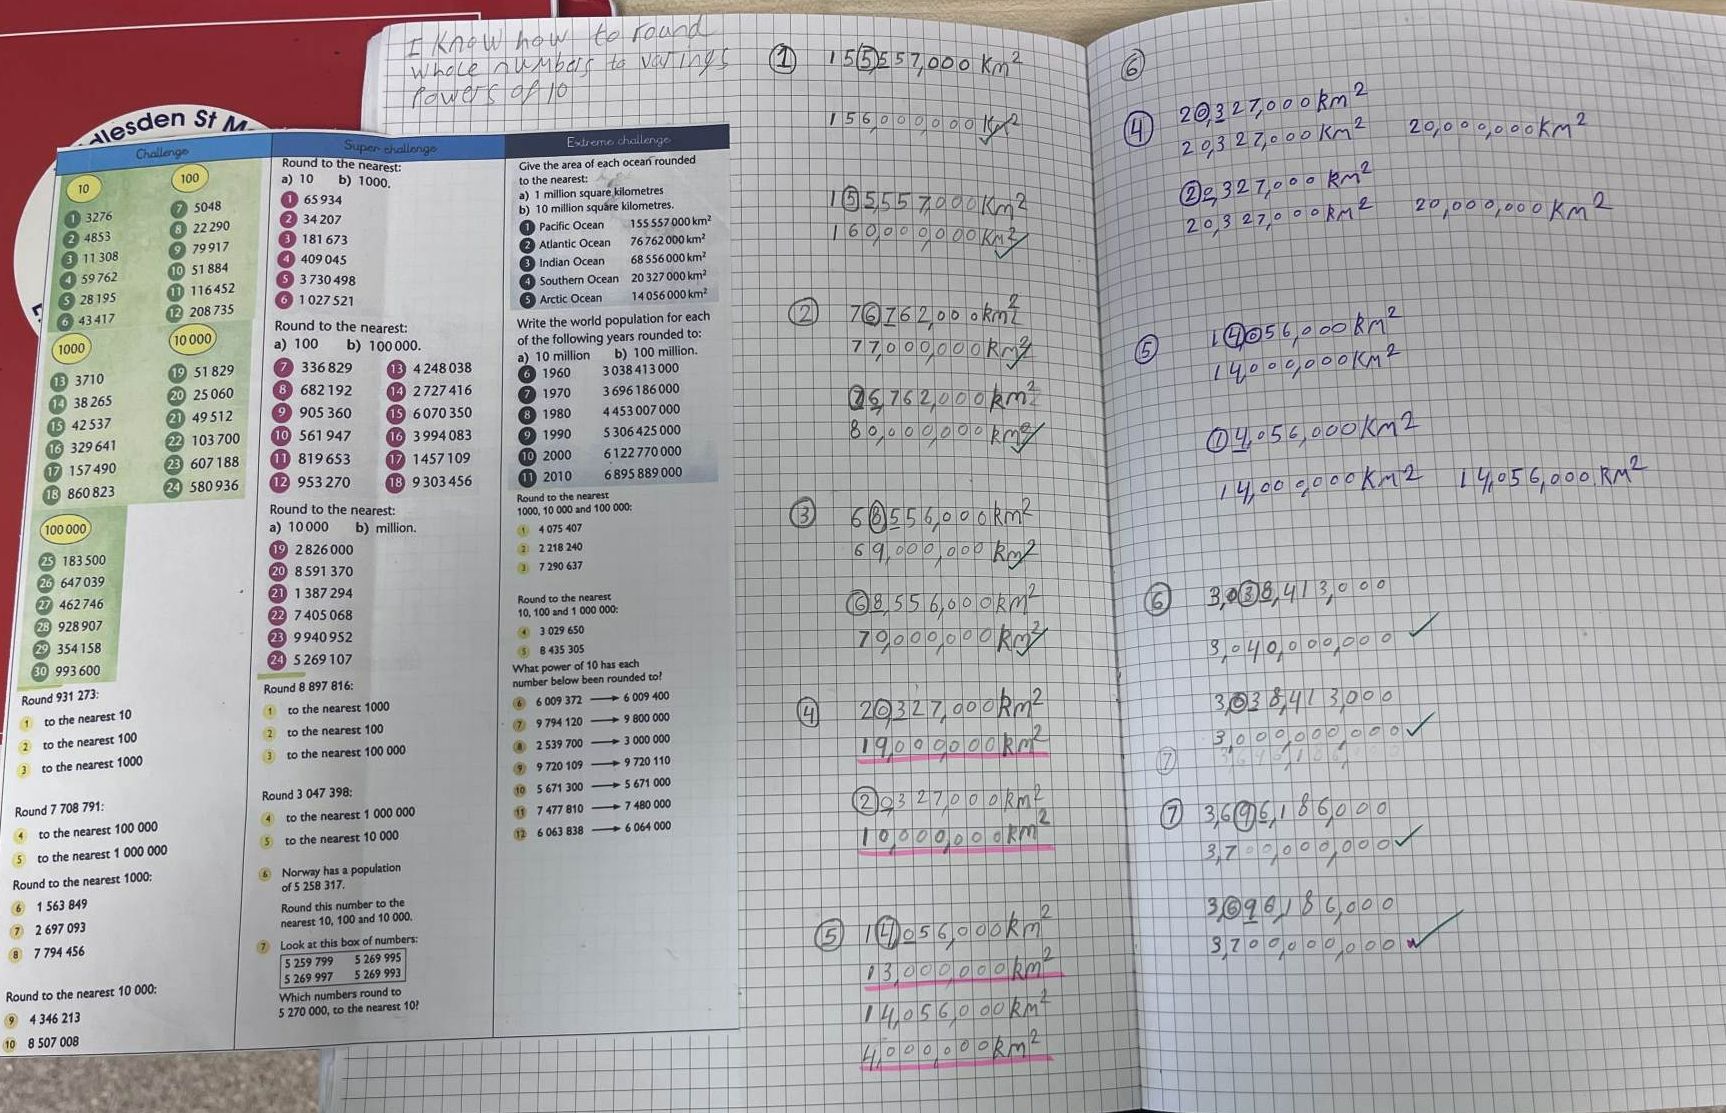 I know how to round
whole numbers to varings
powers of 10
llesden St M
Challenge
10
1 3276
2 4853
3 11 308
4 59 762
5 28 195
6 43 417
100
7 5048
8 22 290
9 79 917
10 51 884
11 116 452
12 208 735
1000
13 3710
14 38 265
15 42 537
16 329 641
17 157 490
18 860 823
10 000
19 51 829
20 25 060
21 49 512
22 103 700
23 607 188
24 580 936
100 000
25 183 500
26 647 039
27 462 746
28 928 907
29 354 158
30 993 600
Round 931 273:
1 to the nearest 10
2 to the nearest 100
3 to the nearest 1000
Round 7 708 791:
4 to the nearest 100 000
5 to the nearest 1 000 000
Round to the nearest 1000:
6 1 563 849
7 2 697 093
8 7 794 456
Round to the nearest 10 000:
9 4 346 213
10 8 507 008
Super challenge
Round to the nearest:
a) 10 b) 1000.
1 65 934
2 34 207
3 181 673
4 409 045
5 3 730 498
6 1 027 521
Round to the nearest:
a) 100 b) 100 000.
7 336 829
8 682 192
9 905 360
10 561 947
11 819 653
12 953 270
13 4 248 038
14 2 727 416
15 6 070 350
16 3 994 083
17 1 457 109
18 9 303 456
Round to the nearest:
a) 10 000 b) million.
19 2 826 000
20 8 591 370
21 1 387 294
22 7 405 068
23 9 940 952
24 5 269 107
Round 8 897 816:
1 to the nearest 1000
2 to the nearest 100
3 to the nearest 100 000
Round 3 047 398:
4 to the nearest 1 000 000
5 to the nearest 10 000
6 Norway has a population
of 5 258 317.
Round this number to the
nearest 10, 100 and 10 000.
7 Look at this box of numbers:
5 259 799 5 269 995
5 269 997 5 269 993
Which numbers round to
5 270 000, to the nearest 10?
Extreme challenge
Give the area of each ocean rounded
to the nearest:
a) 1 million square kilometres
b) 10 million square kilometres.
1 Pacific Ocean 155 557 000 km²
2 Atlantic Ocean 76 762 000 km²
3 Indian Ocean 68 556 000 km²
4 Southern Ocean 20 327 000 km²
5 Arctic Ocean 14 056 000 km²
Write the world population for each
of the following years rounded to:
a) 10 million b) 100 million.
6 1960 3 038 413 000
7 1970 3 696 186 000
8 1980 4 453 007 000
9 1990 5 306 425 000
10 2000 6 122 770 000
11 2010 6 895 889 000
Round to the nearest
1000, 10 000 and 100 000:
1 4 075 407
2 2 218 240
3 7 290 637
Round to the nearest
10, 100 and 1 000 000:
4 3 029 650
5 8 435 305
What power of 10 has each
number below been rounded to?
6 6 009 372 → 6 009 400
7 9 794 120 → 9 800 000
8 2 539 700 → 3 000 000
9 9 720 109 → 9 720 110
10 5 671 300 → 5 671 000
11 7 477 810 → 7 480 000
12 6 063 838 → 6 064 000
1 155,557,000 Km²
156,000,000 Km²
155,557,000 Km²
160,000,000 Km²
2 76,762,000km²
77,000,000km²
76,762,000km²
80,000,000km²
3 68,556,000km²
69,000,000km²
68,556,000km²
70,000,000km²
4 20,327,000km²
19,000,000km²
20,327,000km²
10,000,000km²
5 14,056,000km²
13,000,000km²
14,056,000km²
4,000,000km²
6
4 20,327,000km²
20,327,000Km² 20,000,000Km²
20,327,000 km²
20,327,000km² 20,000,000Km²
5 14,056,000km²
14,000,000Km²
14,056,000Km2
14,000,000Km2 14,056,000Km²
6 3,038,413,000
3,040,000,000
3,038,413,000
3,000,000,000
7
7 3,696,186,000
3,700,000,000
3,696,186,000
3,700,000,000